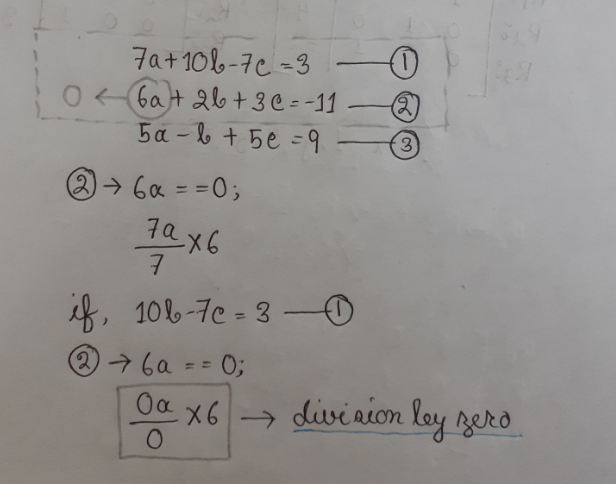 7a+10b-7c=3 —— ①
0 ← 6a+2b+3c=-11 —— ②
5a-b+5c=9 —— ③
② → 6a==0;
7a/7 ×6
if, 10b-7c=3 —— ①
② → 6a==0;
0a/0 ×6 → division by zero